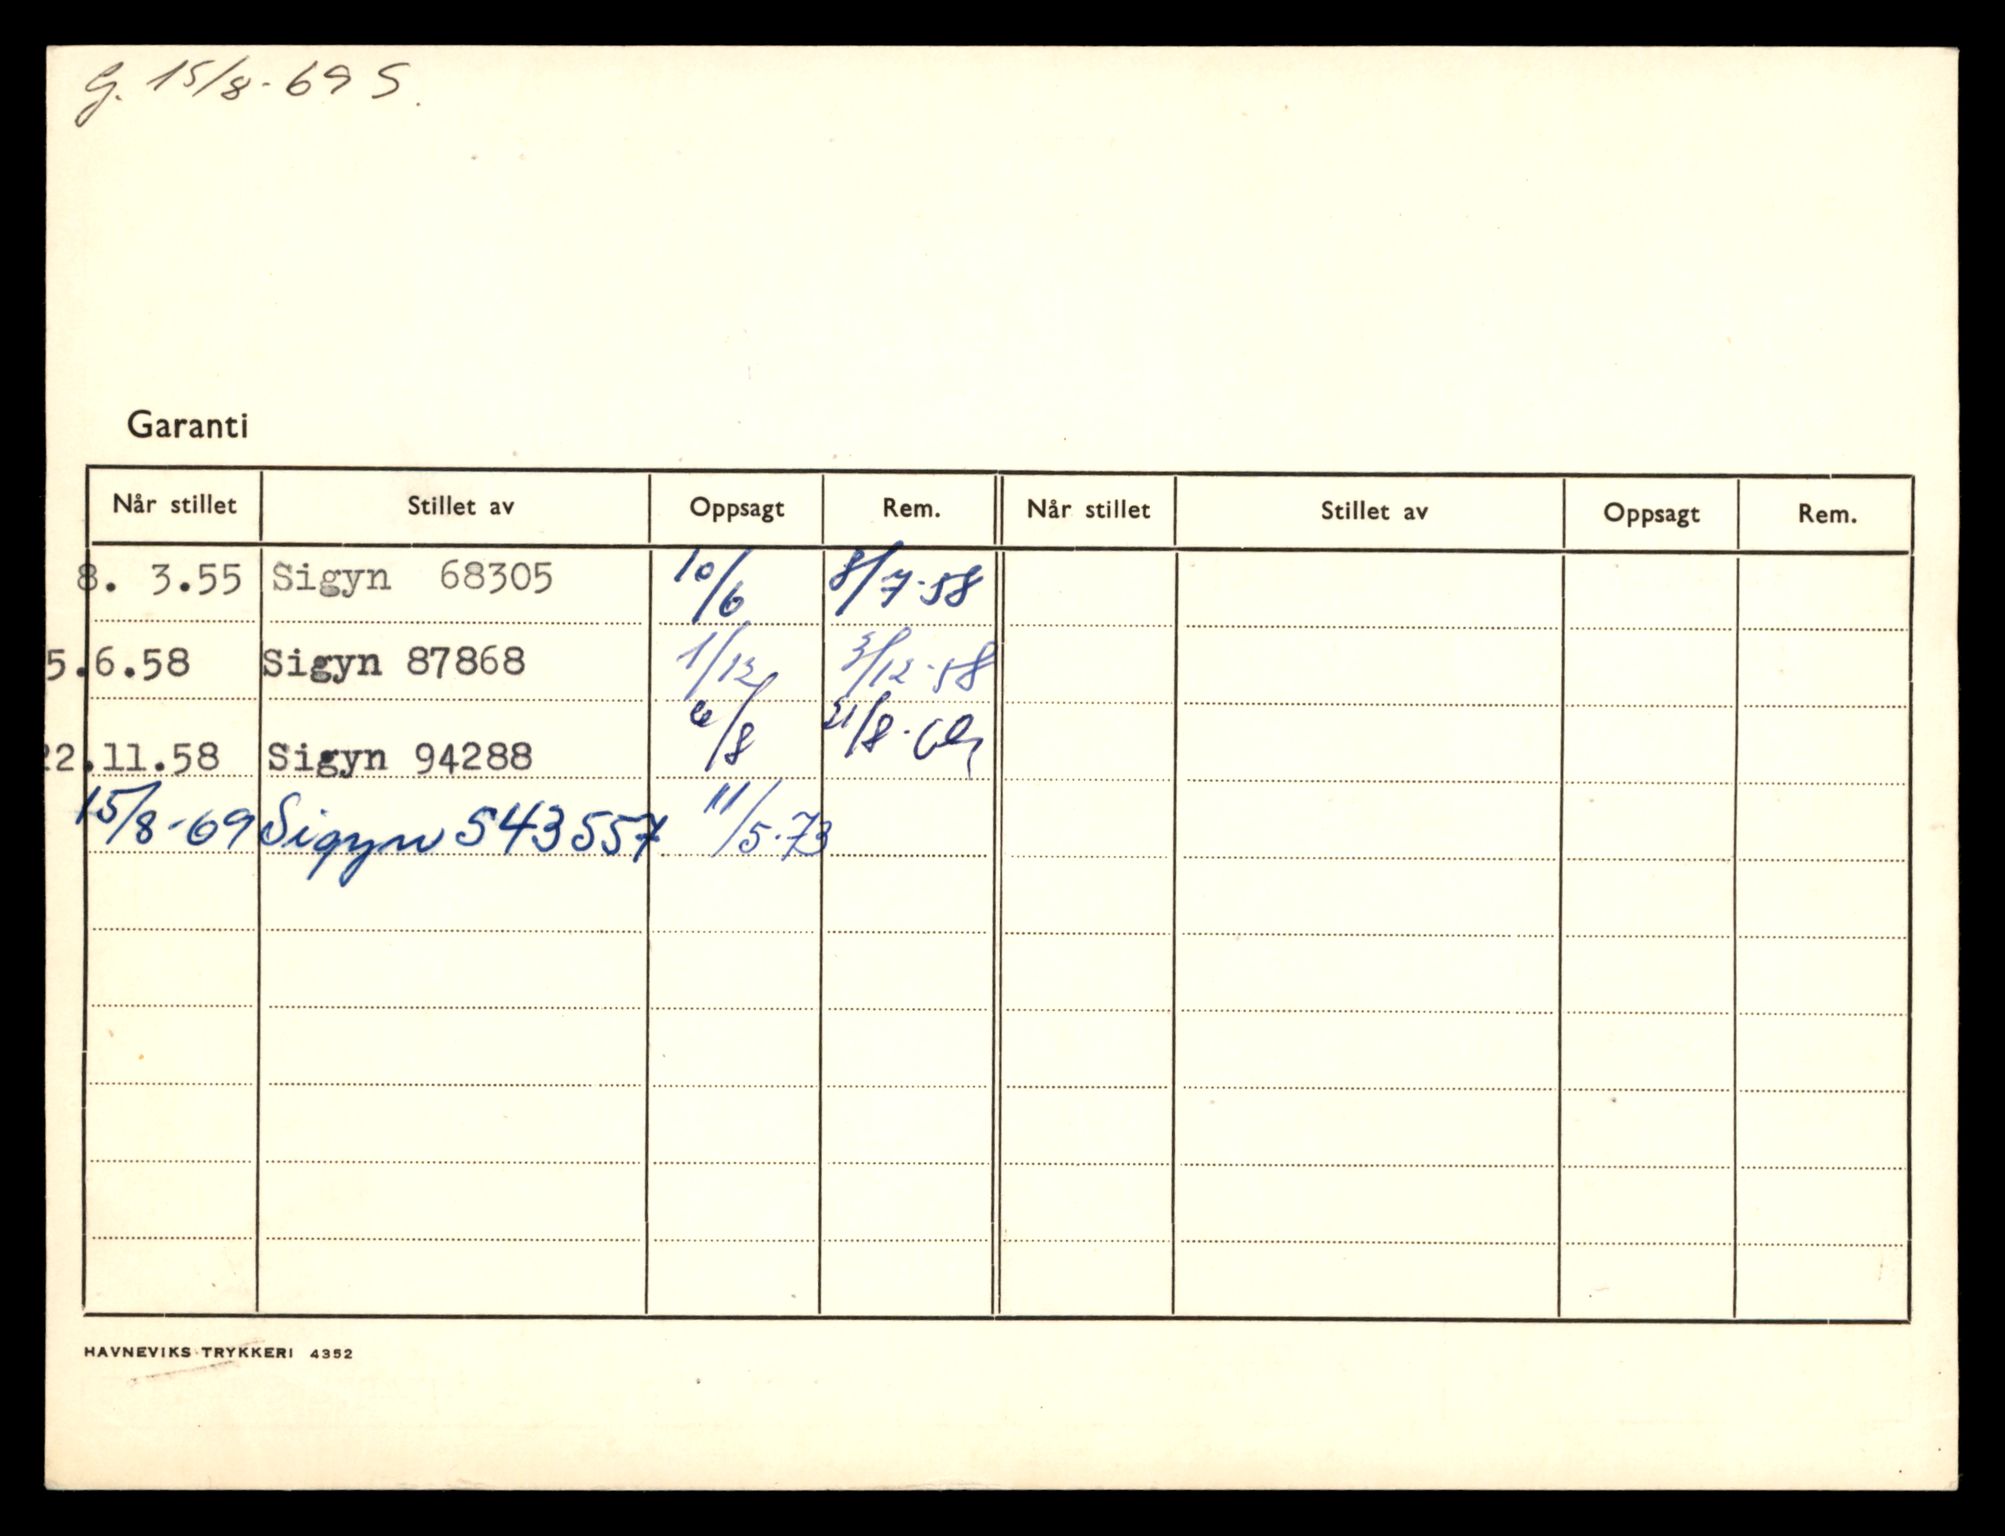 G. 15/8-69 S.
Garanti
Når stillet Stillet av Oppsagt Rem. Når stillet Stillet av Oppsagt Rem.
8. 3.55 Sigyn 68305 10/6 8/7-58
5.6.58 Sigyn 87868 1/12 3/12-58
22.11.58 Sigyn 94288 6/8 21/8-69
15/8-69 Sigyn 543557 11/5-73
HAVNEVIKS TRYKKERI 4352